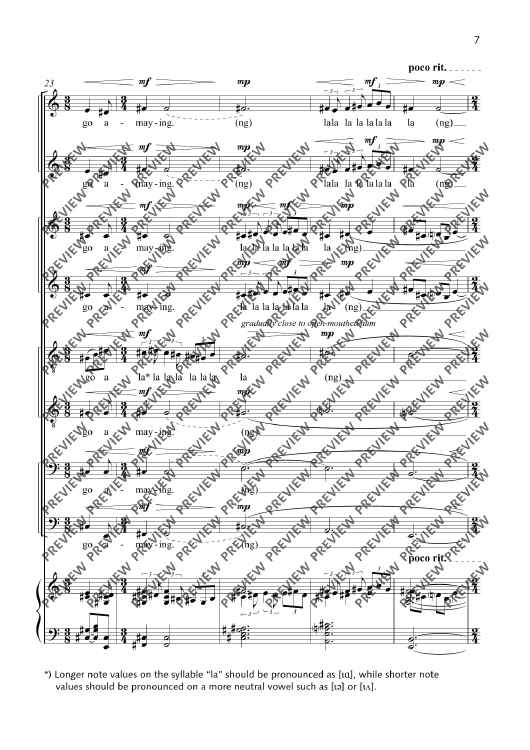 7
poco rit.
23
mf mp mf mp
go a - may-ing. (ng) lala la la la la la la (ng)
mf mp mf mp
go a - may-ing. (ng) lala la la la la la la (ng)
mf mp mf mp
go a - may-ing. la la la la la la la la (ng)
mf mp mf mp
go a - may-ing. la la la la la la la la (ng)
gradually close to open-mouthed hum
mf mp
go a la* la la la la la la la (ng)
mf mp
go a - may-ing. (ng)
mf mp
go a - may-ing. (ng)
mf mp
go a - may-ing. (ng)
poco rit.
PREVIEW PREVIEW PREVIEW PREVIEW PREVIEW PREVIEW
*) Longer note values on the syllable "la" should be pronounced as [lɑ], while shorter note
values should be pronounced on a more neutral vowel such as [lə] or [lʌ].